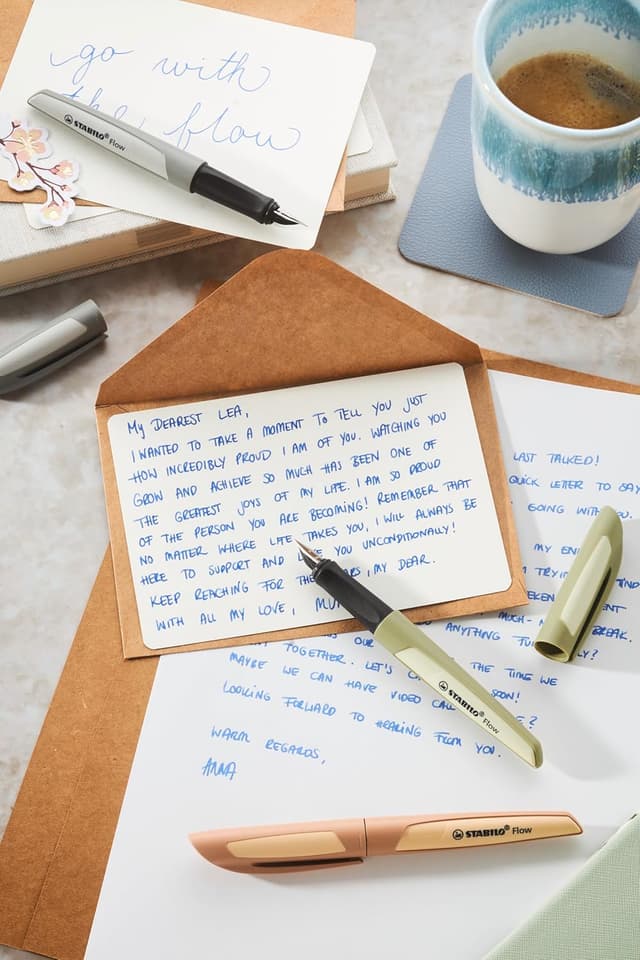 go with
the flow
STABILO® Flow
My DEAREST LEA,
I WANTED TO TAKE A MOMENT TO TELL YOU JUST
HOW INCREDIBLY PROUD I AM OF YOU. WATCHING YOU
GROW AND ACHIEVE SO MUCH HAS BEEN ONE OF
THE GREATEST JOYS OF MY LIFE. I AM SO PROUD
OF THE PERSON YOU ARE BECOMING! REMEMBER THAT
NO MATTER WHERE LIFE TAKES YOU, I WILL ALWAYS BE
HERE TO SUPPORT AND YOU UNCONDITIONALLY!
KEEP REACHING FOR THE , MY DEAR.
WITH ALL MY LOVE,
LAST TALKED!
QUICK LETTER TO SAY
GOING WITH
MY
ANYTHING
BREAK.
TOGETHER. LET'S THE TIME WE
MAYBE WE CAN HAVE VIDEO
LOOKING FORWARD TO HEARING FROM YOU.
WARM REGARDS,
ANNA
STABILO® Flow
STABILO® Flow